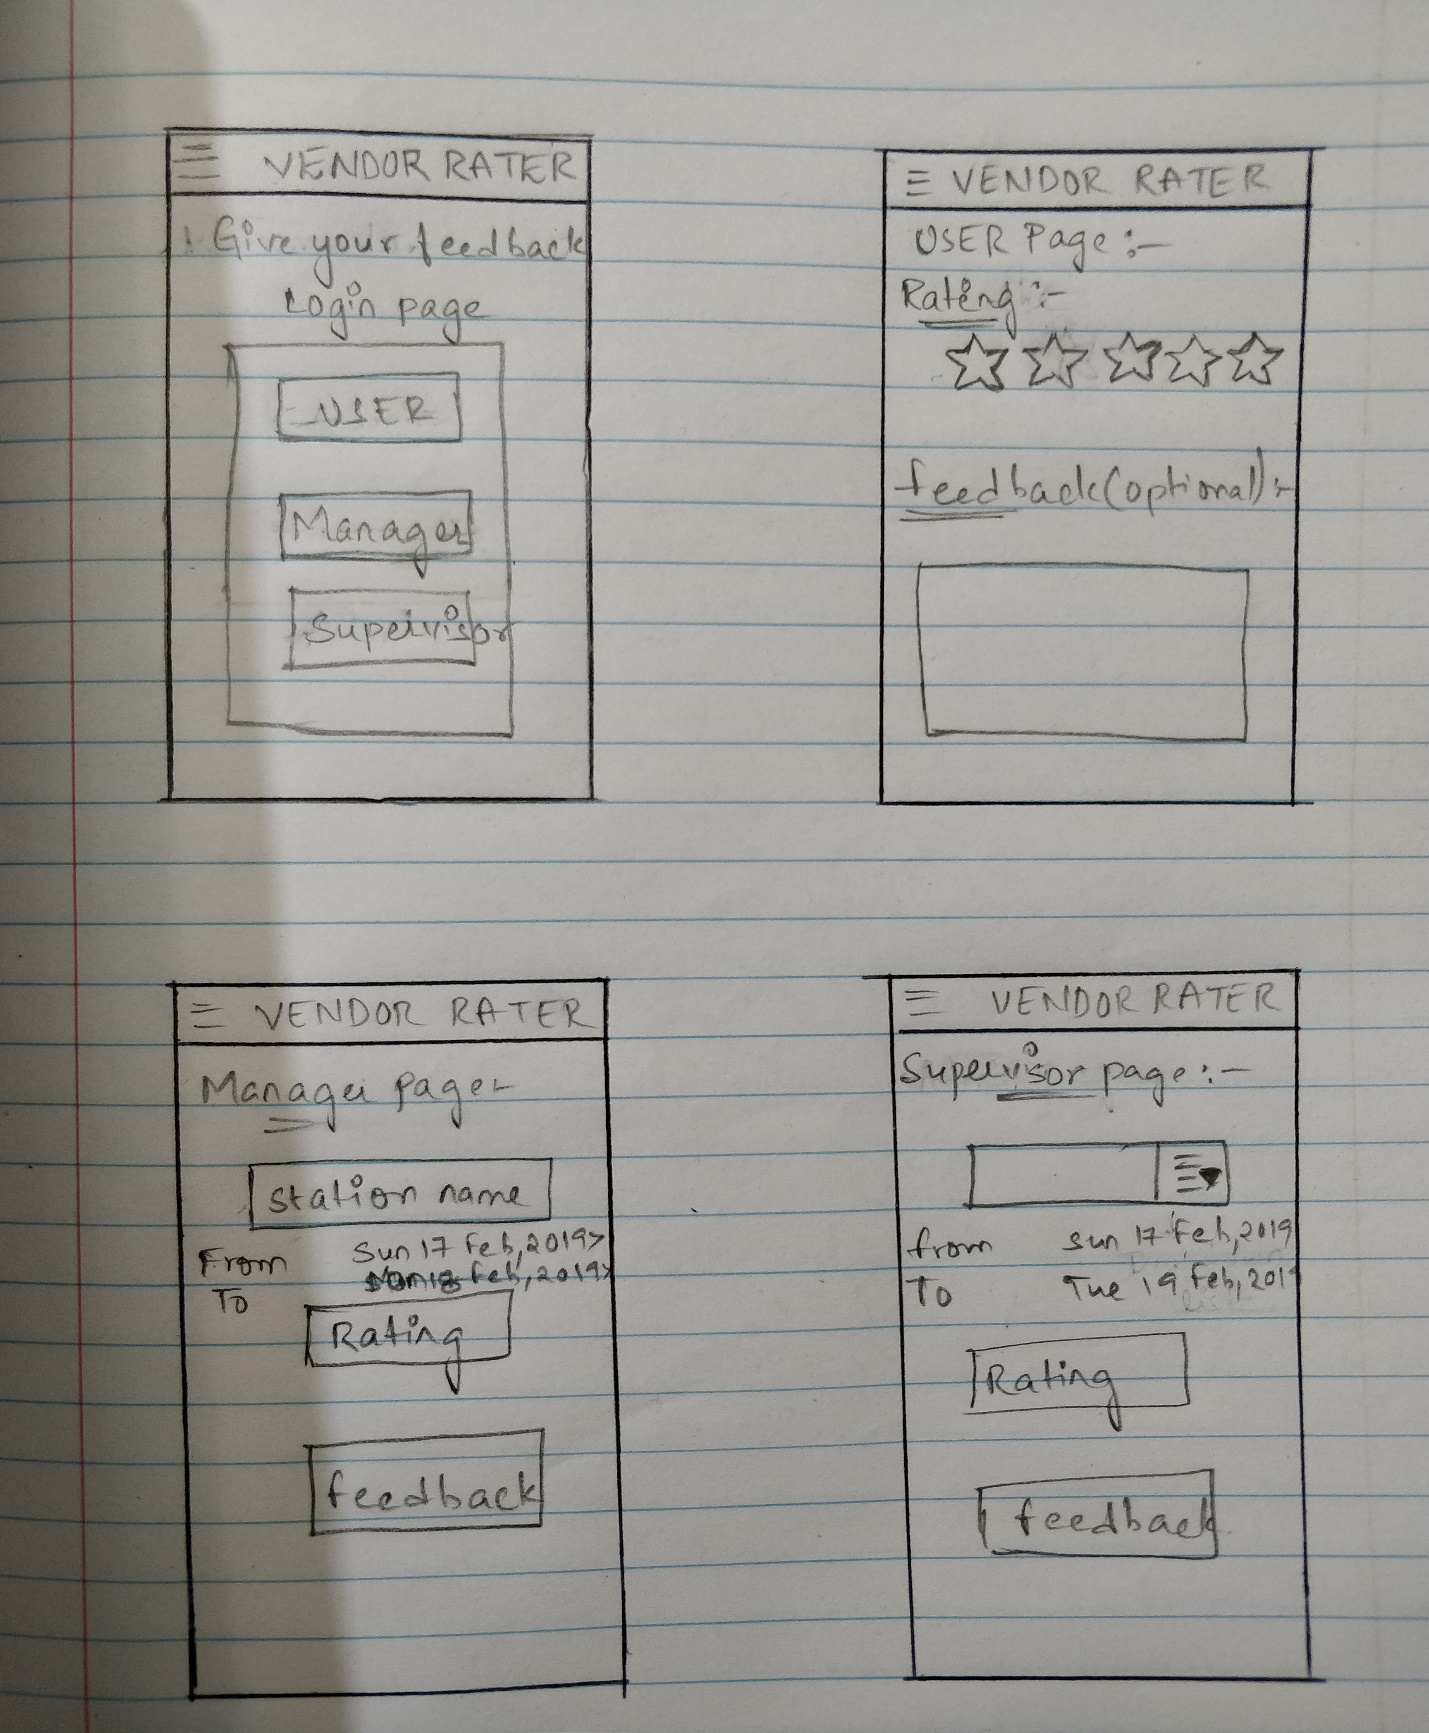 VENDOR RATER
Give your feedback
Login page
USER
Manager
Supervisor
VENDOR RATER
USER Page :-
Rating :-
feedback(optional) :-
VENDOR RATER
Manager page-
Station name
From Sun 17 Feb, 2019>
To Feb, 2019>
Rating
feedback
VENDOR RATER
Supervisor page :-
from Sun 17 Feb, 2019
To Tue 19 Feb, 2019
Rating
feedback